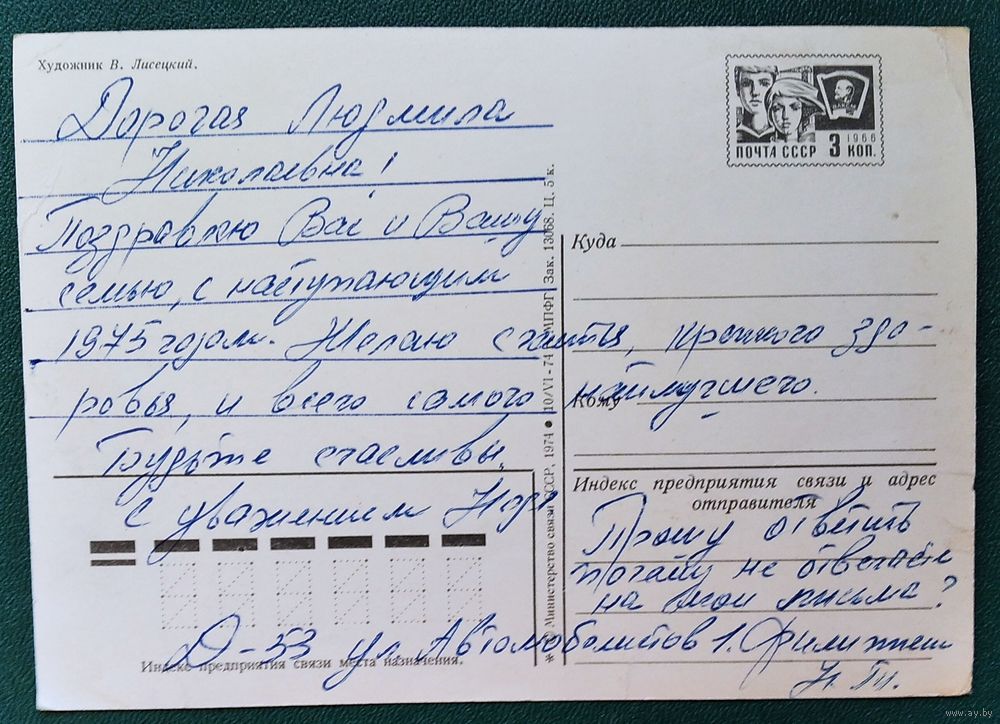 Художник В. Лисецкий.
1966
ПОЧТА СССР 3 КОП.
Дорогая Людмила
Николаевна!
Поздравляю Вас и Вашу
семью, с наступающим
1975 годом. Желаю счастья, крепкого здо-
ровья, и всего самого наилучшего.
Будьте счасливы,
с уважением
Куда
Кому
Индекс предприятия связи и адрес
отправителя
Прошу ответить
почему не отвечаете
на мои письма?
Д-53 ул. Автомоболистов 1.
Индекс предприятия связи места назначения.
Министерство связи СССР, 1974 ● 10/VI - 74 МПФГ Зак. 13068. Ц. 5 к.
www.ay.by